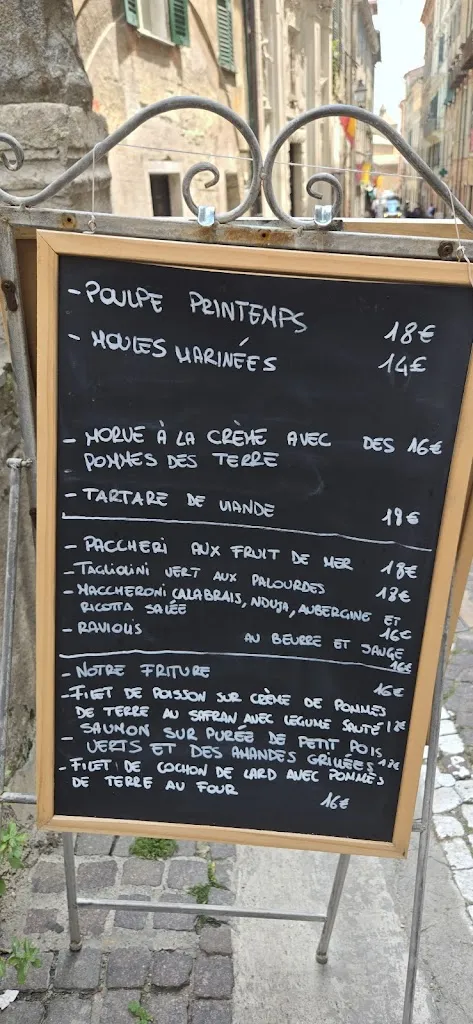 - POULPE PRINTEMPS 18€
- MOULES MARINÉES 14€
- MORUE À LA CRÈME AVEC DES 16€
POMMES DES TERRE
- TARTARE DE VIANDE 18€
- PACCHERI AUX FRUIT DE MER 18€
- TAGLIOLINI VERT AUX PALOURDES 18€
- MACCHERONI CALABRAIS, NDUJA, AUBERGINE ET
RICOTTA SALÉE 16€
- RAVIOLIS AU BEURRE ET SAUGE
16€
- NOTRE FRITURE 16€
- FILET DE POISSON SUR CRÈME DE POMMES
DE TERRE AU SAFRAN AVEC LEGUME SAUTÉ
- SAUMON SUR PURÉE DE PETIT POIS
VERTS ET DES AMANDES GRILLÉES 17€
- FILET DE COCHON DE LARD AVEC POMMES
DE TERRE AU FOUR
16€